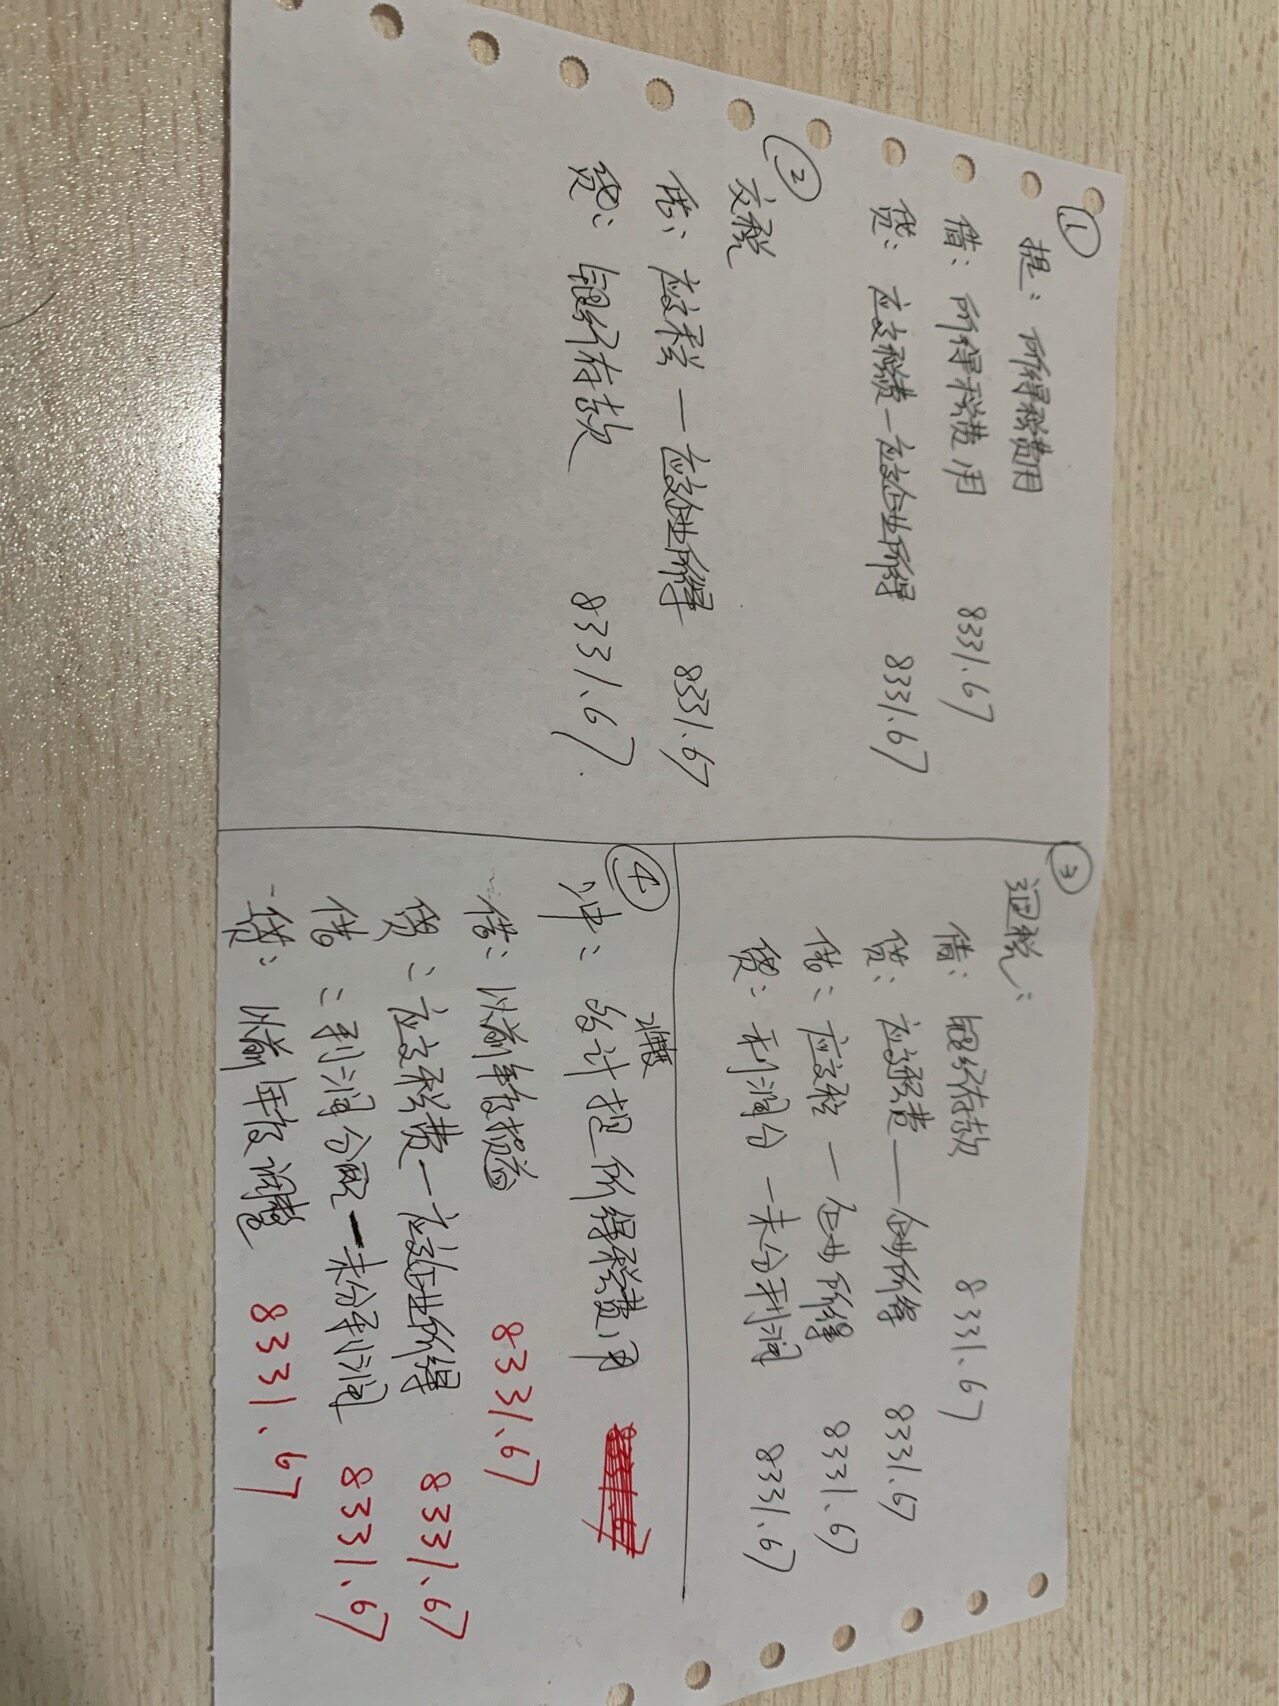 ①
提：所得税费用
借：所得税费用 8331.67
贷：应交税费—应交企业所得 8331.67
②
交税
借：应交税—应交企业所得 8331.67
贷：银行存款 8331.67.
③
退税：
借：银行存款 8331.67
贷：应交税费——企业所得 8331.67
借：应交税—企业所得 8331.67
贷：利润分—未分利润 8331.67
④
冲：计提所得税费用
借：以前年度损益 8331.67
贷：应交税费—应交企业所得 8331.67
借：利润分配—未分利润 8331.67
贷：以前年度调整 8331.67